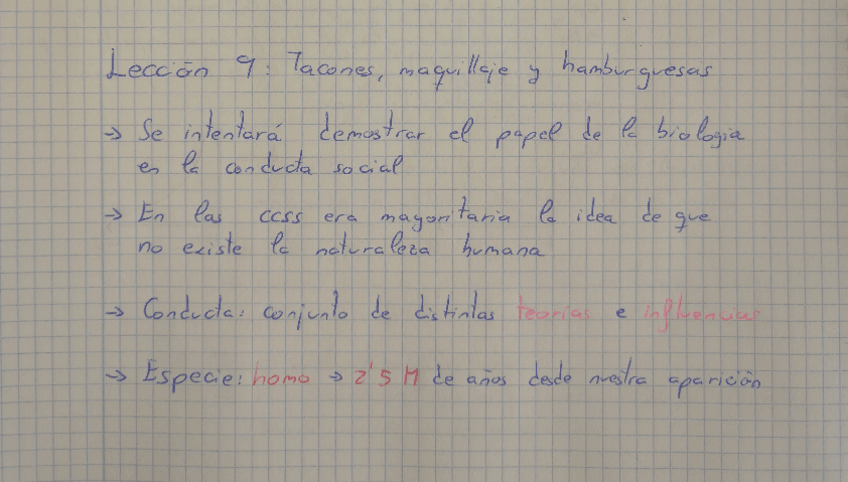 Lección 9: Tacones, maquillaje y hamburguesas
→ Se intentará demostrar el papel de la biologia
en la conducta social
→ En las ccss era mayoritaria la idea de que
no existe la naturaleza humana
→ Conducta: conjunto de distintas teorias e influencias
→ Especie: homo → 2'5 M de años desde nuestra aparición